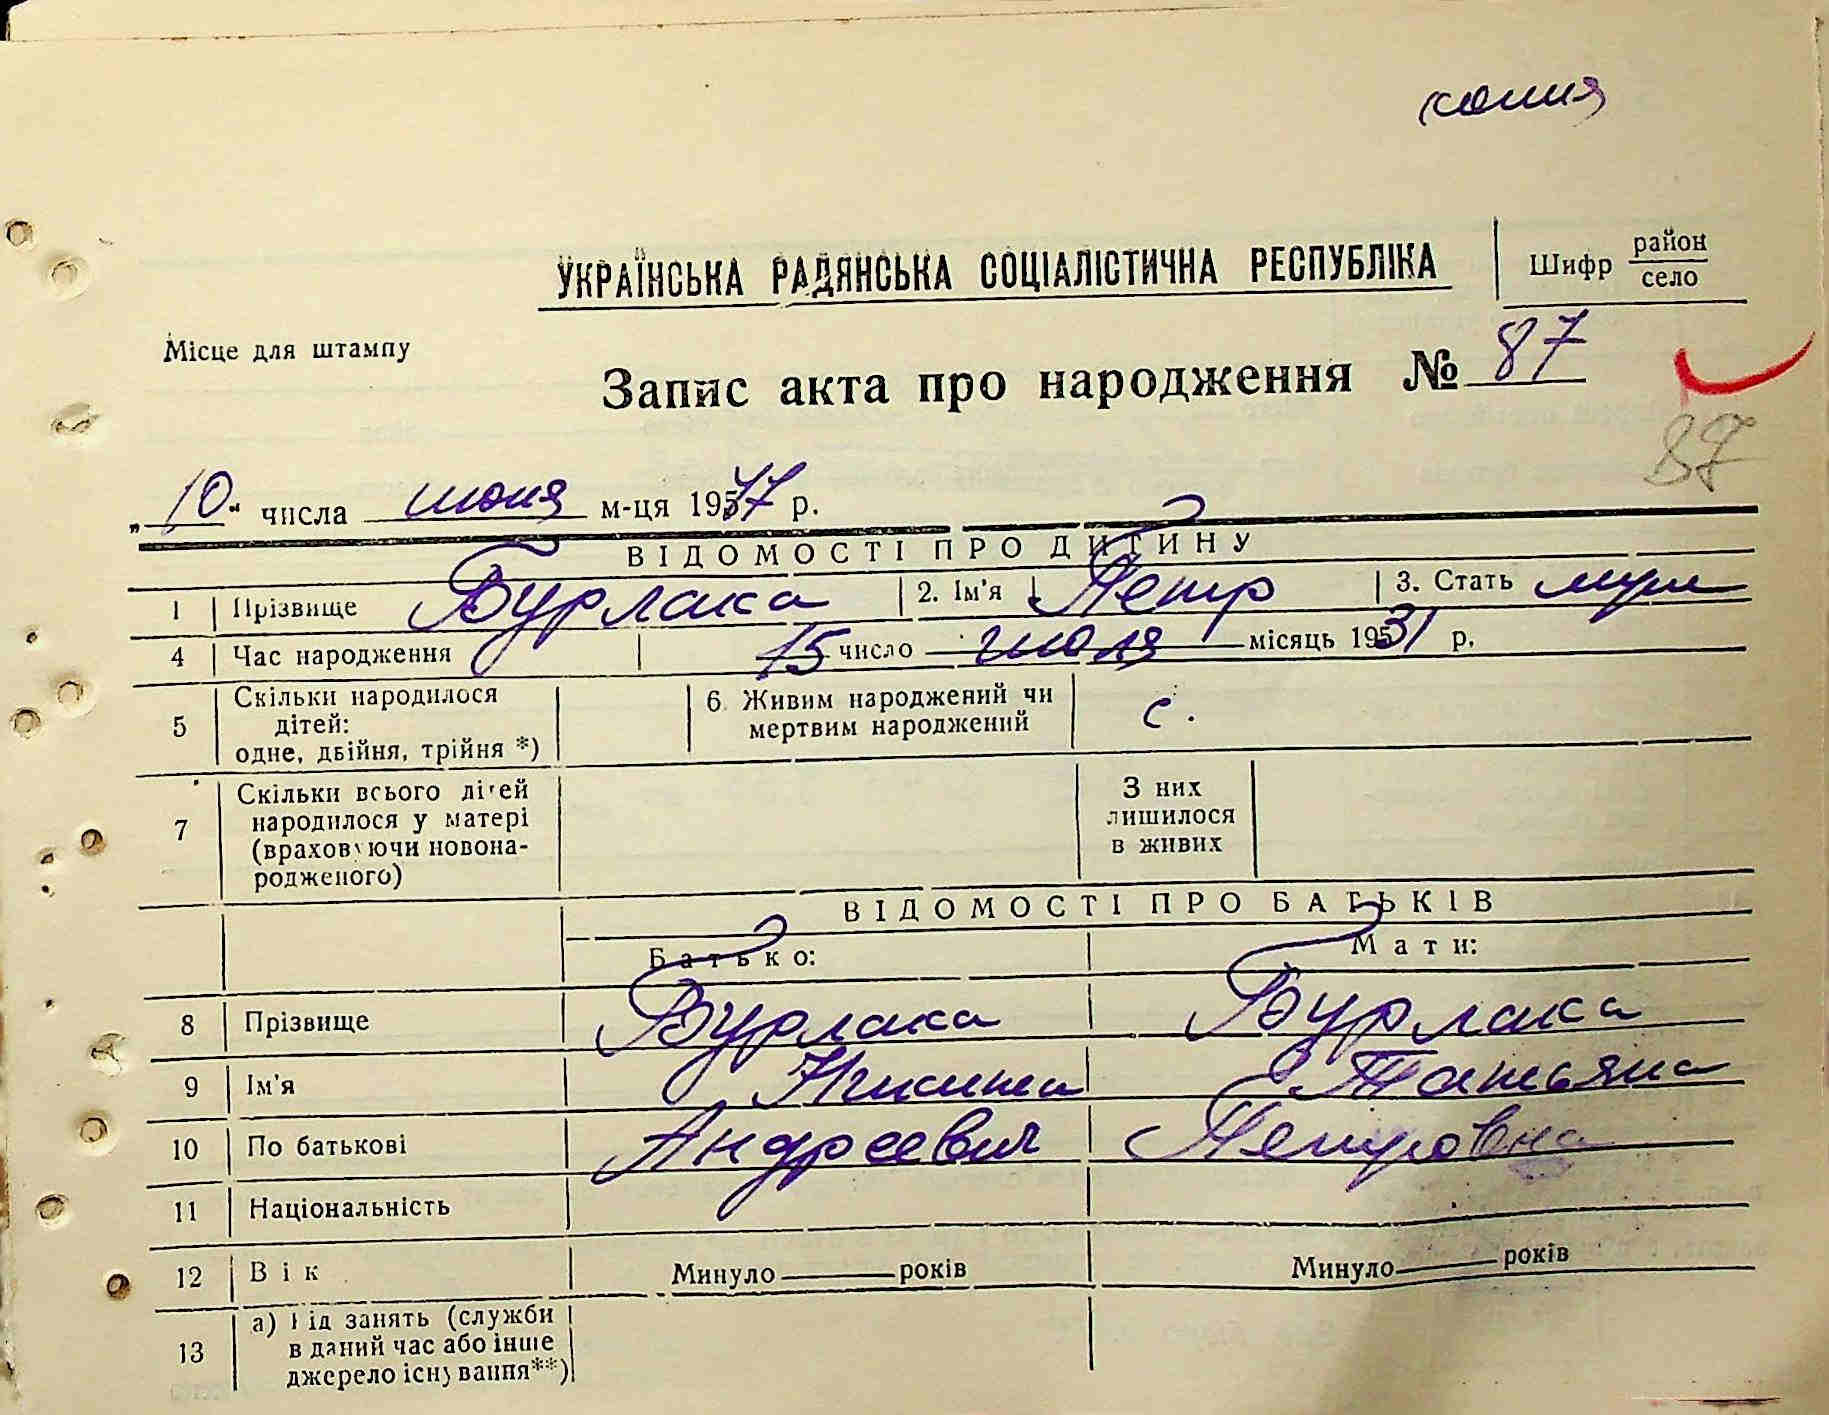 копия
УКРАЇНСЬКА РАДЯНСЬКА СОЦІАЛІСТИЧНА РЕСПУБЛІКА
Шифр район
село
Місце для штампу
Запис акта про народження № 87
87
„10“ числа июня м-ця 1947 р.
ВІДОМОСТІ ПРО ДИТИНУ
1 Прізвище Бурлака 2. Ім'я Петр 3. Стать муж
4 Час народження 15 число июля місяць 1931 р.
5 Скільки народилося дітей: одне, двійня, трійня *) 6. Живим народжений чи мертвим народжений
7 Скільки всього дітей народилося у матері (враховуючи новонародженого) З них лишилося в живих
ВІДОМОСТІ ПРО БАТЬКІВ
Батько: Мати:
8 Прізвище Бурлака Бурлака
9 Ім'я Никита Татьяна
10 По батькові Андреевич Петровна
11 Національність
12 Вік Минуло років Минуло років
13 а) Рід занять (служби в даний час або інше джерело існування**)